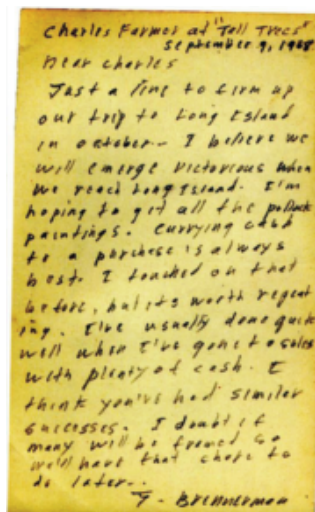 Charles Farmer at "Tall Trees"
September 9, 1968
Dear Charles
Just a line to firm up
our trip to Long Island
in October - I believe we
will emerge victorious when
we reach Long Island. I'm
hoping to get all the pollock
paintings. Carrying cash
to a purchase is always
best. I touched on that
before, but its worth repeat
ing. I've usually done quite
well when I've gone to sales
with plenty of cash. I
think you've had similar
successes. I doubt if
many will be framed so
we'll have that chore to
do later..
Brennerman